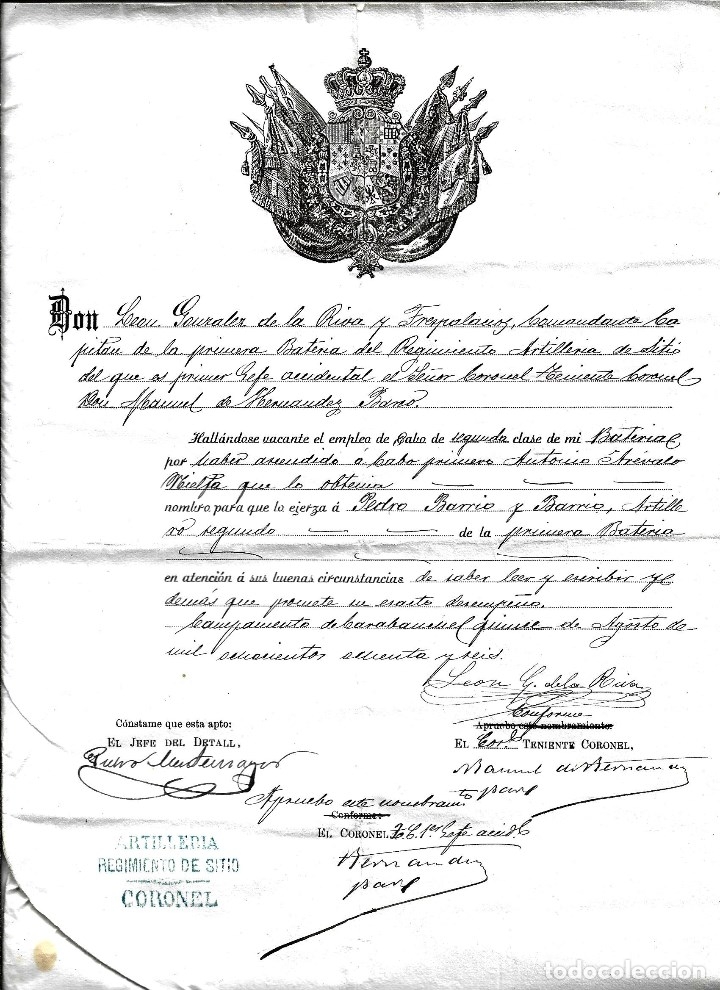 Don Leon Gonzalez de la Riva y Trespalacios, Comandante Ca
pitan de la primera Bateria del Regimiento Artilleria de Sitio
del que es primer Gefe accidental el Señor Coronel Teniente Coronel
Don Manuel de Hernandez
Hallándose vacante el empleo de Cabo de segunda clase de mi Bateria
por haber ascendido á Cabo primero Antonio Arévalo
que lo obtenia
nombro para que lo ejerza á Pedro Barrio y Barrio, Artille
ro segundo de la primera Bateria
en atención á sus buenas circunstancias de saber leer y escribir y
demás que promete su exacto desempeño.
Campamento de Carabanchel quince de Agosto de
mil ochocientos ochenta y seis.
Leon G. de la Riva
Conforme
Constame que esta apto:
Apruebo este nombramiento:
EL JEFE DEL DETALL,
EL Cor.l TENIENTE CORONEL,
Manuel de Hernandez
Apruebo este nombram.to
Conforme:
EL CORONEL T. C. 1.er Gefe accid.l
Hernandez
ARTILLERIA
REGIMIENTO DE SITIO
CORONEL
todocoleccion